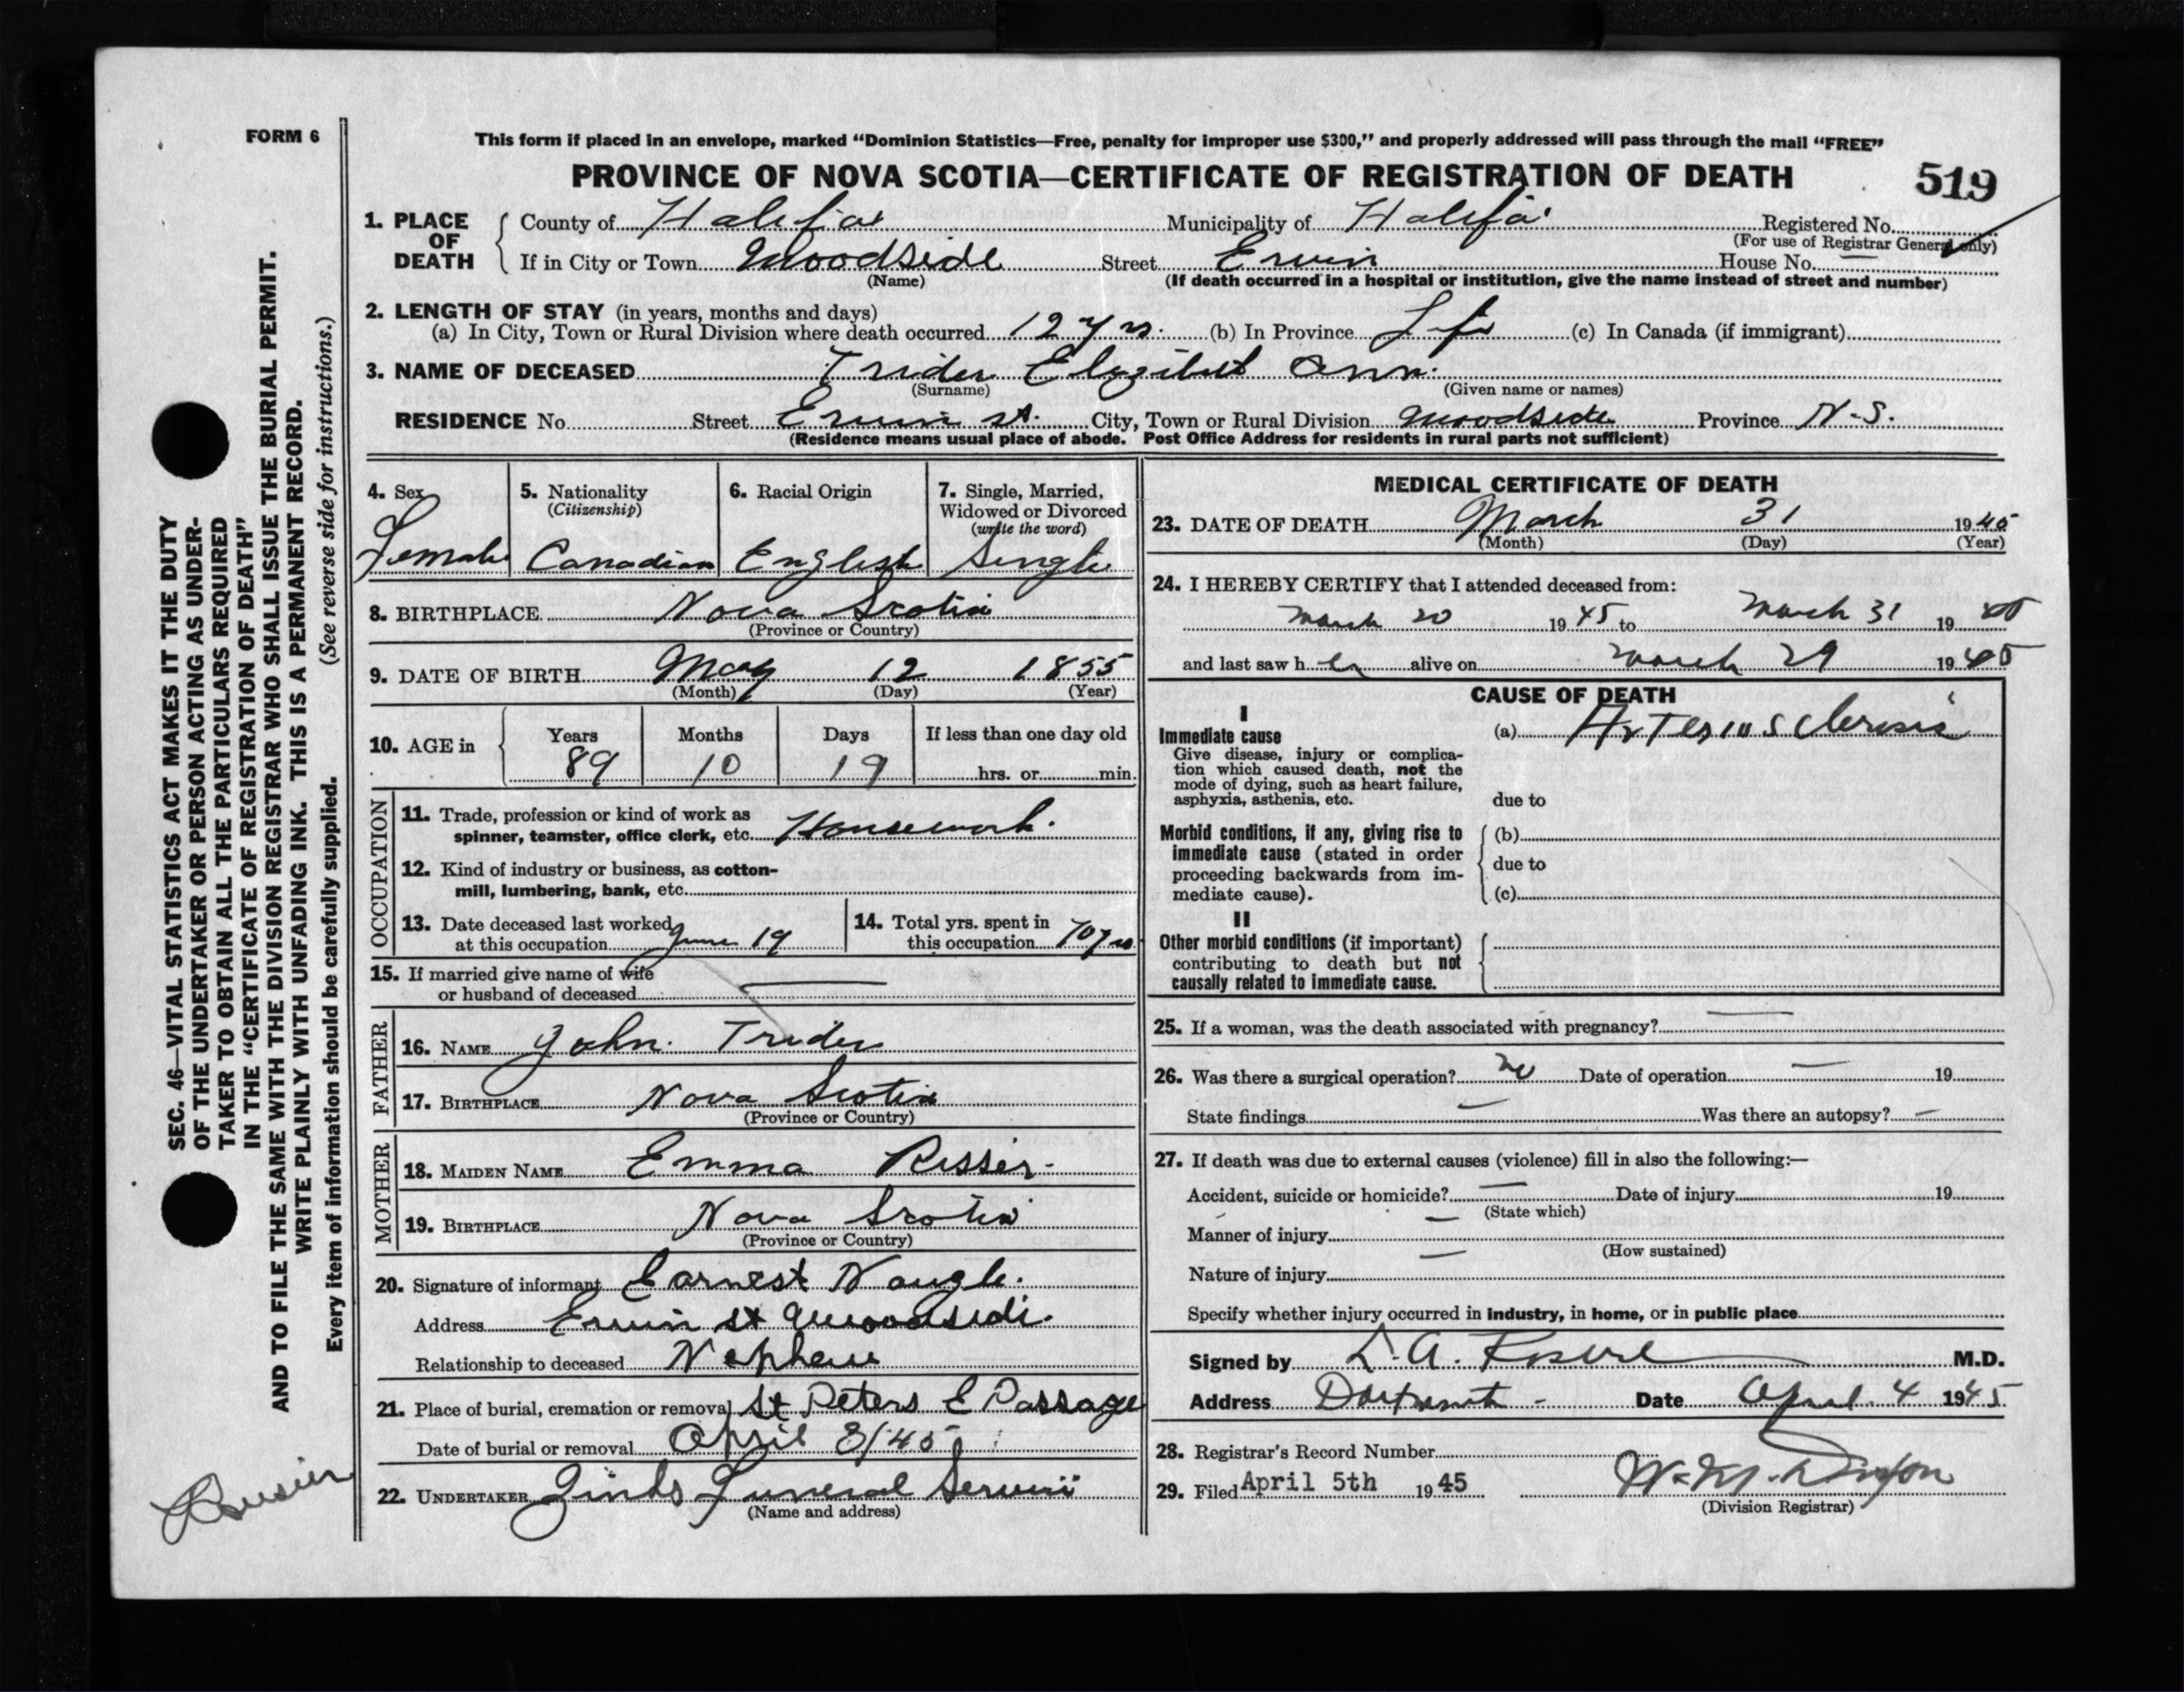 FORM 6
This form if placed in an envelope, marked “Dominion Statistics—Free, penalty for improper use $300,” and properly addressed will pass through the mail “FREE”
PROVINCE OF NOVA SCOTIA—CERTIFICATE OF REGISTRATION OF DEATH
519
1. PLACE OF DEATH
County of Halifax Municipality of Halifax Registered No.
(For use of Registrar General only)
If in City or Town Woodside Street Erwin House No. —
(Name) (If death occurred in a hospital or institution, give the name instead of street and number)
2. LENGTH OF STAY (in years, months and days)
(a) In City, Town or Rural Division where death occurred 12 yrs. (b) In Province Life (c) In Canada (if immigrant)
3. NAME OF DECEASED Trider Elizibet Ann.
(Surname) (Given name or names)
RESIDENCE No. Street Erwin st. City, Town or Rural Division Woodside Province N-S.
(Residence means usual place of abode. Post Office Address for residents in rural parts not sufficient)
4. Sex
Female
5. Nationality
(Citizenship)
Canadian
6. Racial Origin
English
7. Single, Married,
Widowed or Divorced
(write the word)
Single
8. BIRTHPLACE Nova Scotia
(Province or Country)
9. DATE OF BIRTH May 12 1855
(Month) (Day) (Year)
10. AGE in
Years Months Days If less than one day old
89 10 19 hrs. or min.
OCCUPATION
11. Trade, profession or kind of work as
spinner, teamster, office clerk, etc. Housework.
12. Kind of industry or business, as cotton-
mill, lumbering, bank, etc.
13. Date deceased last worked
at this occupation June 19
14. Total yrs. spent in
this occupation 70 yrs
15. If married give name of wife
or husband of deceased —
FATHER
16. NAME John. Trider
17. BIRTHPLACE Nova Scotia
(Province or Country)
MOTHER
18. MAIDEN NAME Emma Risser-
19. BIRTHPLACE Nova Scotia
(Province or Country)
20. Signature of informant Earnest Naugle.
Address Erwin st Woodside.
Relationship to deceased Nephew
21. Place of burial, cremation or removal St Peters E Passage
Date of burial or removal April 3/45
22. UNDERTAKER Zinks Funeral Service
(Name and address)
MEDICAL CERTIFICATE OF DEATH
23. DATE OF DEATH March 31 1945
(Month) (Day) (Year)
24. I HEREBY CERTIFY that I attended deceased from:
March 20 1945 to March 31 1945
and last saw her alive on March 29 1945
CAUSE OF DEATH
I
Immediate cause
Give disease, injury or complica-
tion which caused death, not the
mode of dying, such as heart failure,
asphyxia, asthenia, etc.
(a) Arteriosclerosis
due to
Morbid conditions, if any, giving rise to
immediate cause (stated in order
proceeding backwards from im-
mediate cause).
(b)
due to
(c)
II
Other morbid conditions (if important)
contributing to death but not
causally related to immediate cause.
25. If a woman, was the death associated with pregnancy? —
26. Was there a surgical operation? no Date of operation — 19
State findings — Was there an autopsy? —
27. If death was due to external causes (violence) fill in also the following:—
Accident, suicide or homicide? — Date of injury 19
(State which)
Manner of injury —
(How sustained)
Nature of injury —
Specify whether injury occurred in industry, in home, or in public place
Signed by L. A. M.D.
Address Dartmouth - Date April. 4 1945
28. Registrar's Record Number
29. Filed April 5th 1945
(Division Registrar)
SEC. 46—VITAL STATISTICS ACT MAKES IT THE DUTY
OF THE UNDERTAKER OR PERSON ACTING AS UNDER-
TAKER TO OBTAIN ALL THE PARTICULARS REQUIRED
IN THE “CERTIFICATE OF REGISTRATION OF DEATH”
AND TO FILE THE SAME WITH THE DIVISION REGISTRAR WHO SHALL ISSUE THE BURIAL PERMIT.
WRITE PLAINLY WITH UNFADING INK. THIS IS A PERMANENT RECORD.
Every item of information should be carefully supplied. (See reverse side for instructions.)